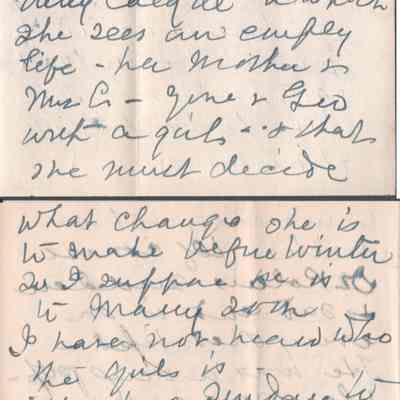 she sees an empty
life - her Mother &
Mrs C. - gone & Geo
with a girl - & that
she must decide
what changes she is
to make before winter
so I suppose he is
to Marry soon
I have not heard who
the girl is